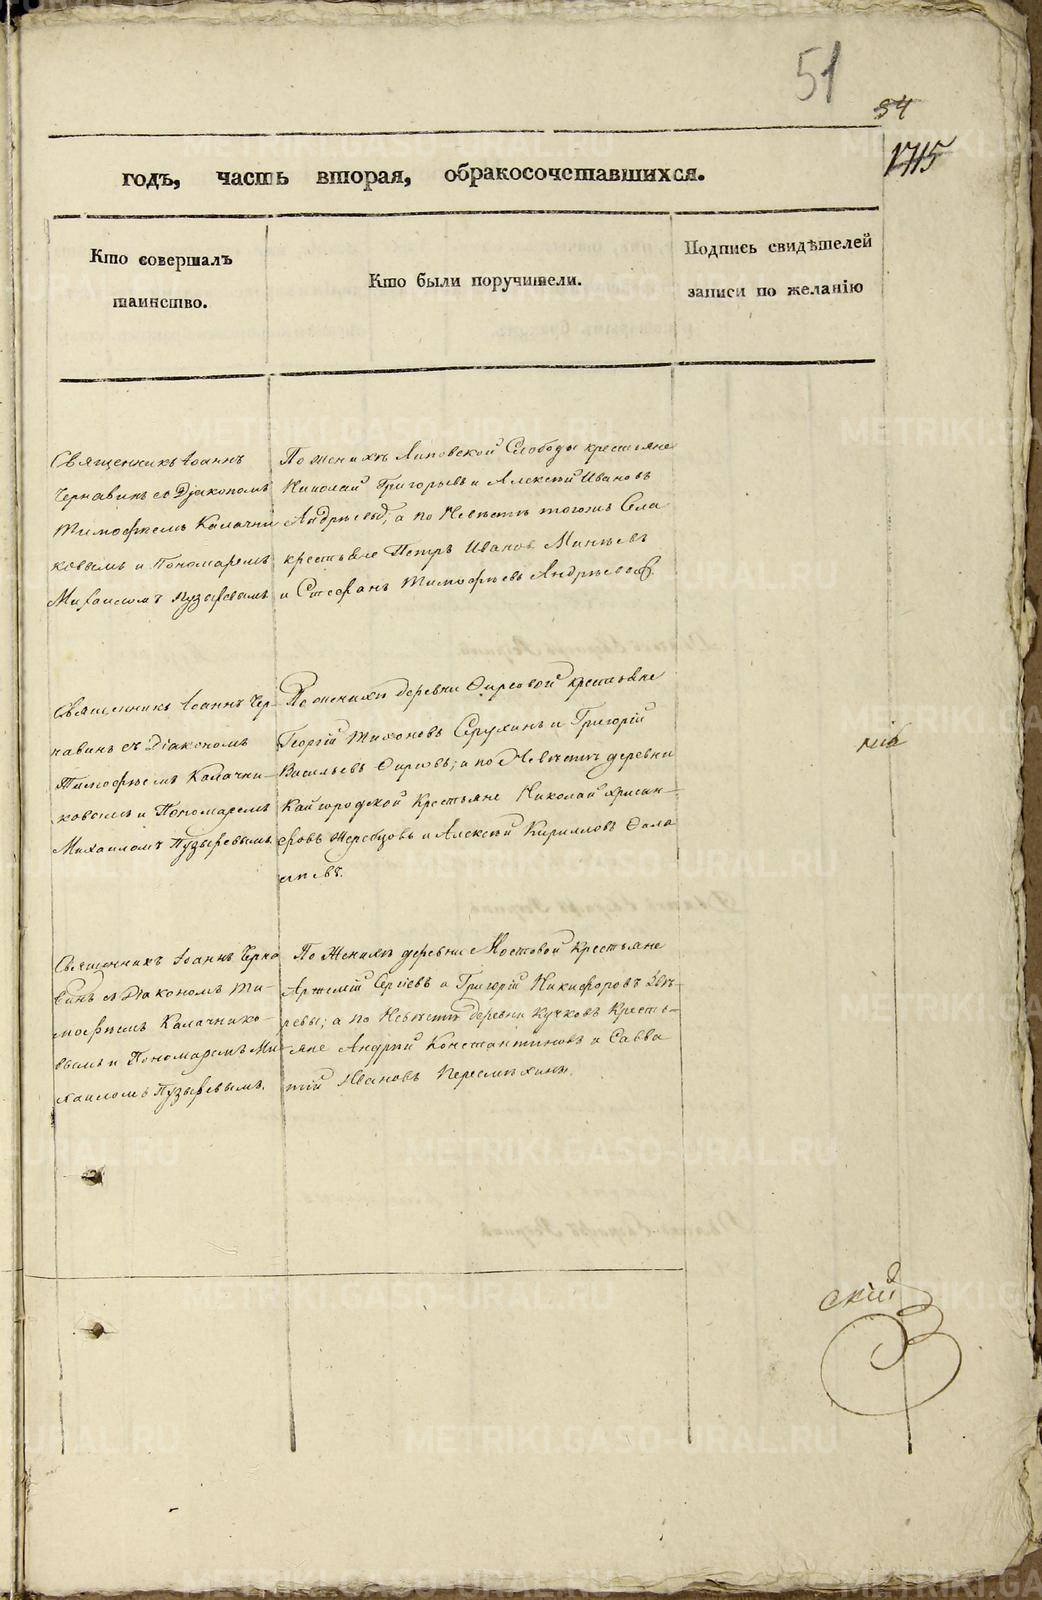 51
54
1715
годъ, часть вторая, обракосочетавшихся.
Кто совершалъ
таинство.
Кто были поручители.
Подпись свидѣтелей
записи по желанію
Священникъ Іоаннъ
Чернавинъ съ Діакономъ
Тимофеемъ Калачни
ковымъ и Пономаремъ
Михаиломъ Пузыревымъ
По женихѣ Липовской Слободы крестьяне
Николай Григорьевъ и Алексѣй Ивановъ
Андреевы, а по Невѣстѣ тогожъ Села
крестьяне Петръ Ивановъ Минѣевъ
и Стефанъ Тимофѣевъ Андреевъ
Священникъ Іоаннъ Чер-
навинъ съ Діакономъ
Тимофѣемъ Калачни-
ковымъ и Пономаремъ
Михаиломъ Пузыревымъ.
По женихѣ деревни Фирсовой крестьяне
Георгій Тихоновъ и Григорій
Васильевъ Фирсовъ; а по Невѣстѣ деревни
Кайгородской Крестьяне Николай Хрисан-
фовъ Жеребцовъ и Алексѣй Кирилловъ Фала
леевъ.
Священникъ Іоаннъ Черна
винъ съ Діакономъ Ти-
мофѣемъ Калачнико-
вымъ и Пономаремъ Ми-
хаиломъ Пузыревымъ.
По Женихѣ деревни Мостовой Крестьяне
Артемій Сергіевъ и Григорій Никифоровъ Звѣ-
ревы; а по Невѣстѣ деревни Кучковъ Кресть-
яне Андрей Константиновъ и Савва
тій Ивановъ Пересмѣхины.
скій
METRIKI.GASO-URAL.RU